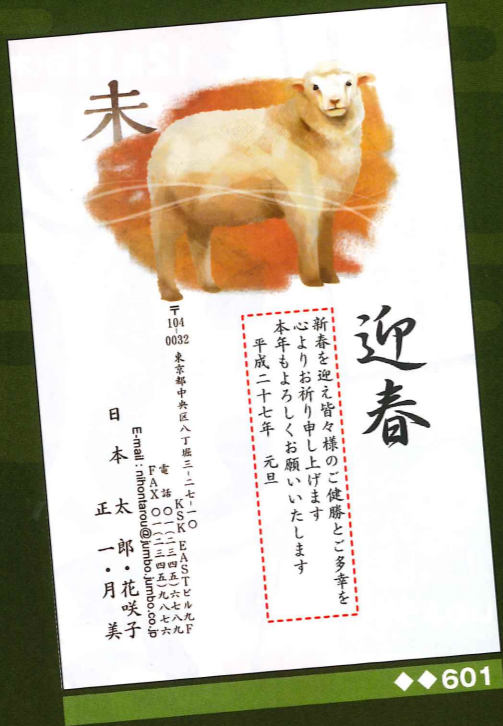 未
迎春
新春を迎え皆々様のご健勝とご多幸を
心よりお祈り申し上げます
本年もよろしくお願いいたします
平成二十七年 元旦
〒104-0032 東京都中央区八丁堀三-二七-一〇
KSK EASTビル九F
電話 〇一(二三四五)六七八九
FAX 〇一(二三四五)九八七六
E-mail : nihontarou@jumbo.jumbo.co.jp
日本太郎・花咲子
正一・月美
◆◆601